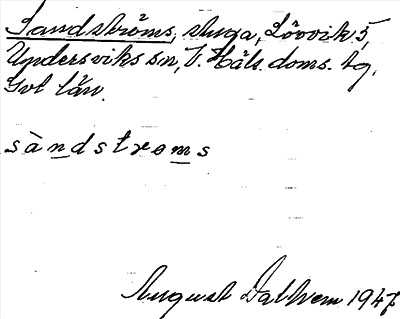 Sandströms, stuga, Lövvik 5,
Undersviks sn, V. Häls. doms. tg,
Gvl län.
sàndstroms
August Dalhem 1947